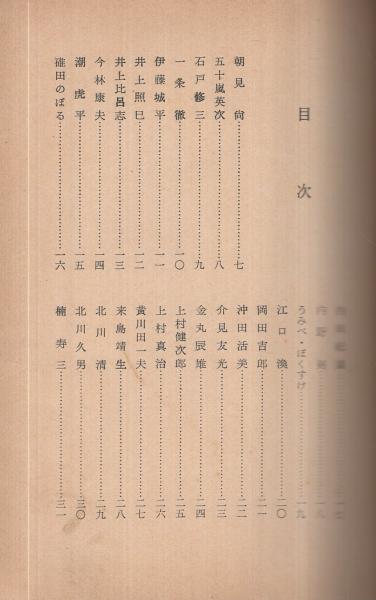 目次
朝見尙……七
五十嵐英次……八
石戸修三……九
一条徹……一〇
伊藤城平……一一
井上照巳……一二
井上比呂志……一三
今林康夫……一四
潮虎平……一五
碓田のぼる……一六
うみべ・ぼくすけ……一九
江口渙……二〇
岡田吉郎……二一
沖田活美……二二
介見友光……二三
金丸辰雄……二四
上村健次郎……二五
上村真治……二六
黄川田一夫……二七
来島靖生……二八
北川清……二九
北川久男……三〇
楠寿三……三一